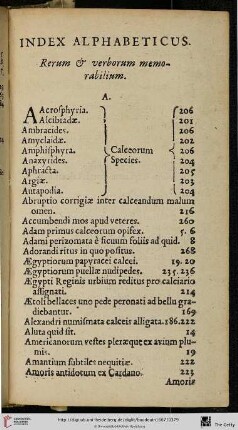 INDEX ALPHABETICUS.
Rerum & verborum memo-
rabilium.
A.
Acrosphyria. 206
Alcibiadæ. 201
Ambracides. 206
Amyclaidæ. 202
Amphisphyra. Calceorum 206
Anaxyrides. Species. 204
Aphracta. 205
Argiæ. 203
Autapodia. 204
Abruptio corrigiæ inter calceandum malum
omen. 216
Accumbendi mos apud veteres. 260
Adam primus calceorum opifex. 5. 6
Adami perizomata è ficuum foliis ad quid. 8
Adorandi ritus in quo positus. 268
Ægyptiorum papyracei calcei. 19. 20
Ægyptiorum puellæ nudipedes. 235. 236
Ægypti Reginis urbium reditus pro calciario
assignati. 214
Ætoli bellaces uno pede peronati ad bella gra-
diebantur. 169
Alexandri numismata calceis alligata. 186. 222
Aluta quid sit. 14
Americanorum vestes pleræque ex avium plu-
mis. 19
Amantium subtiles nequitiæ. 222
Amoris antidotum ex Cardano. 223
Amoris